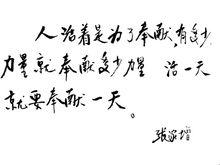 人活着是为了奉献,有多少
力量就奉献多少力量 活一天
就要奉献一天。
张家增